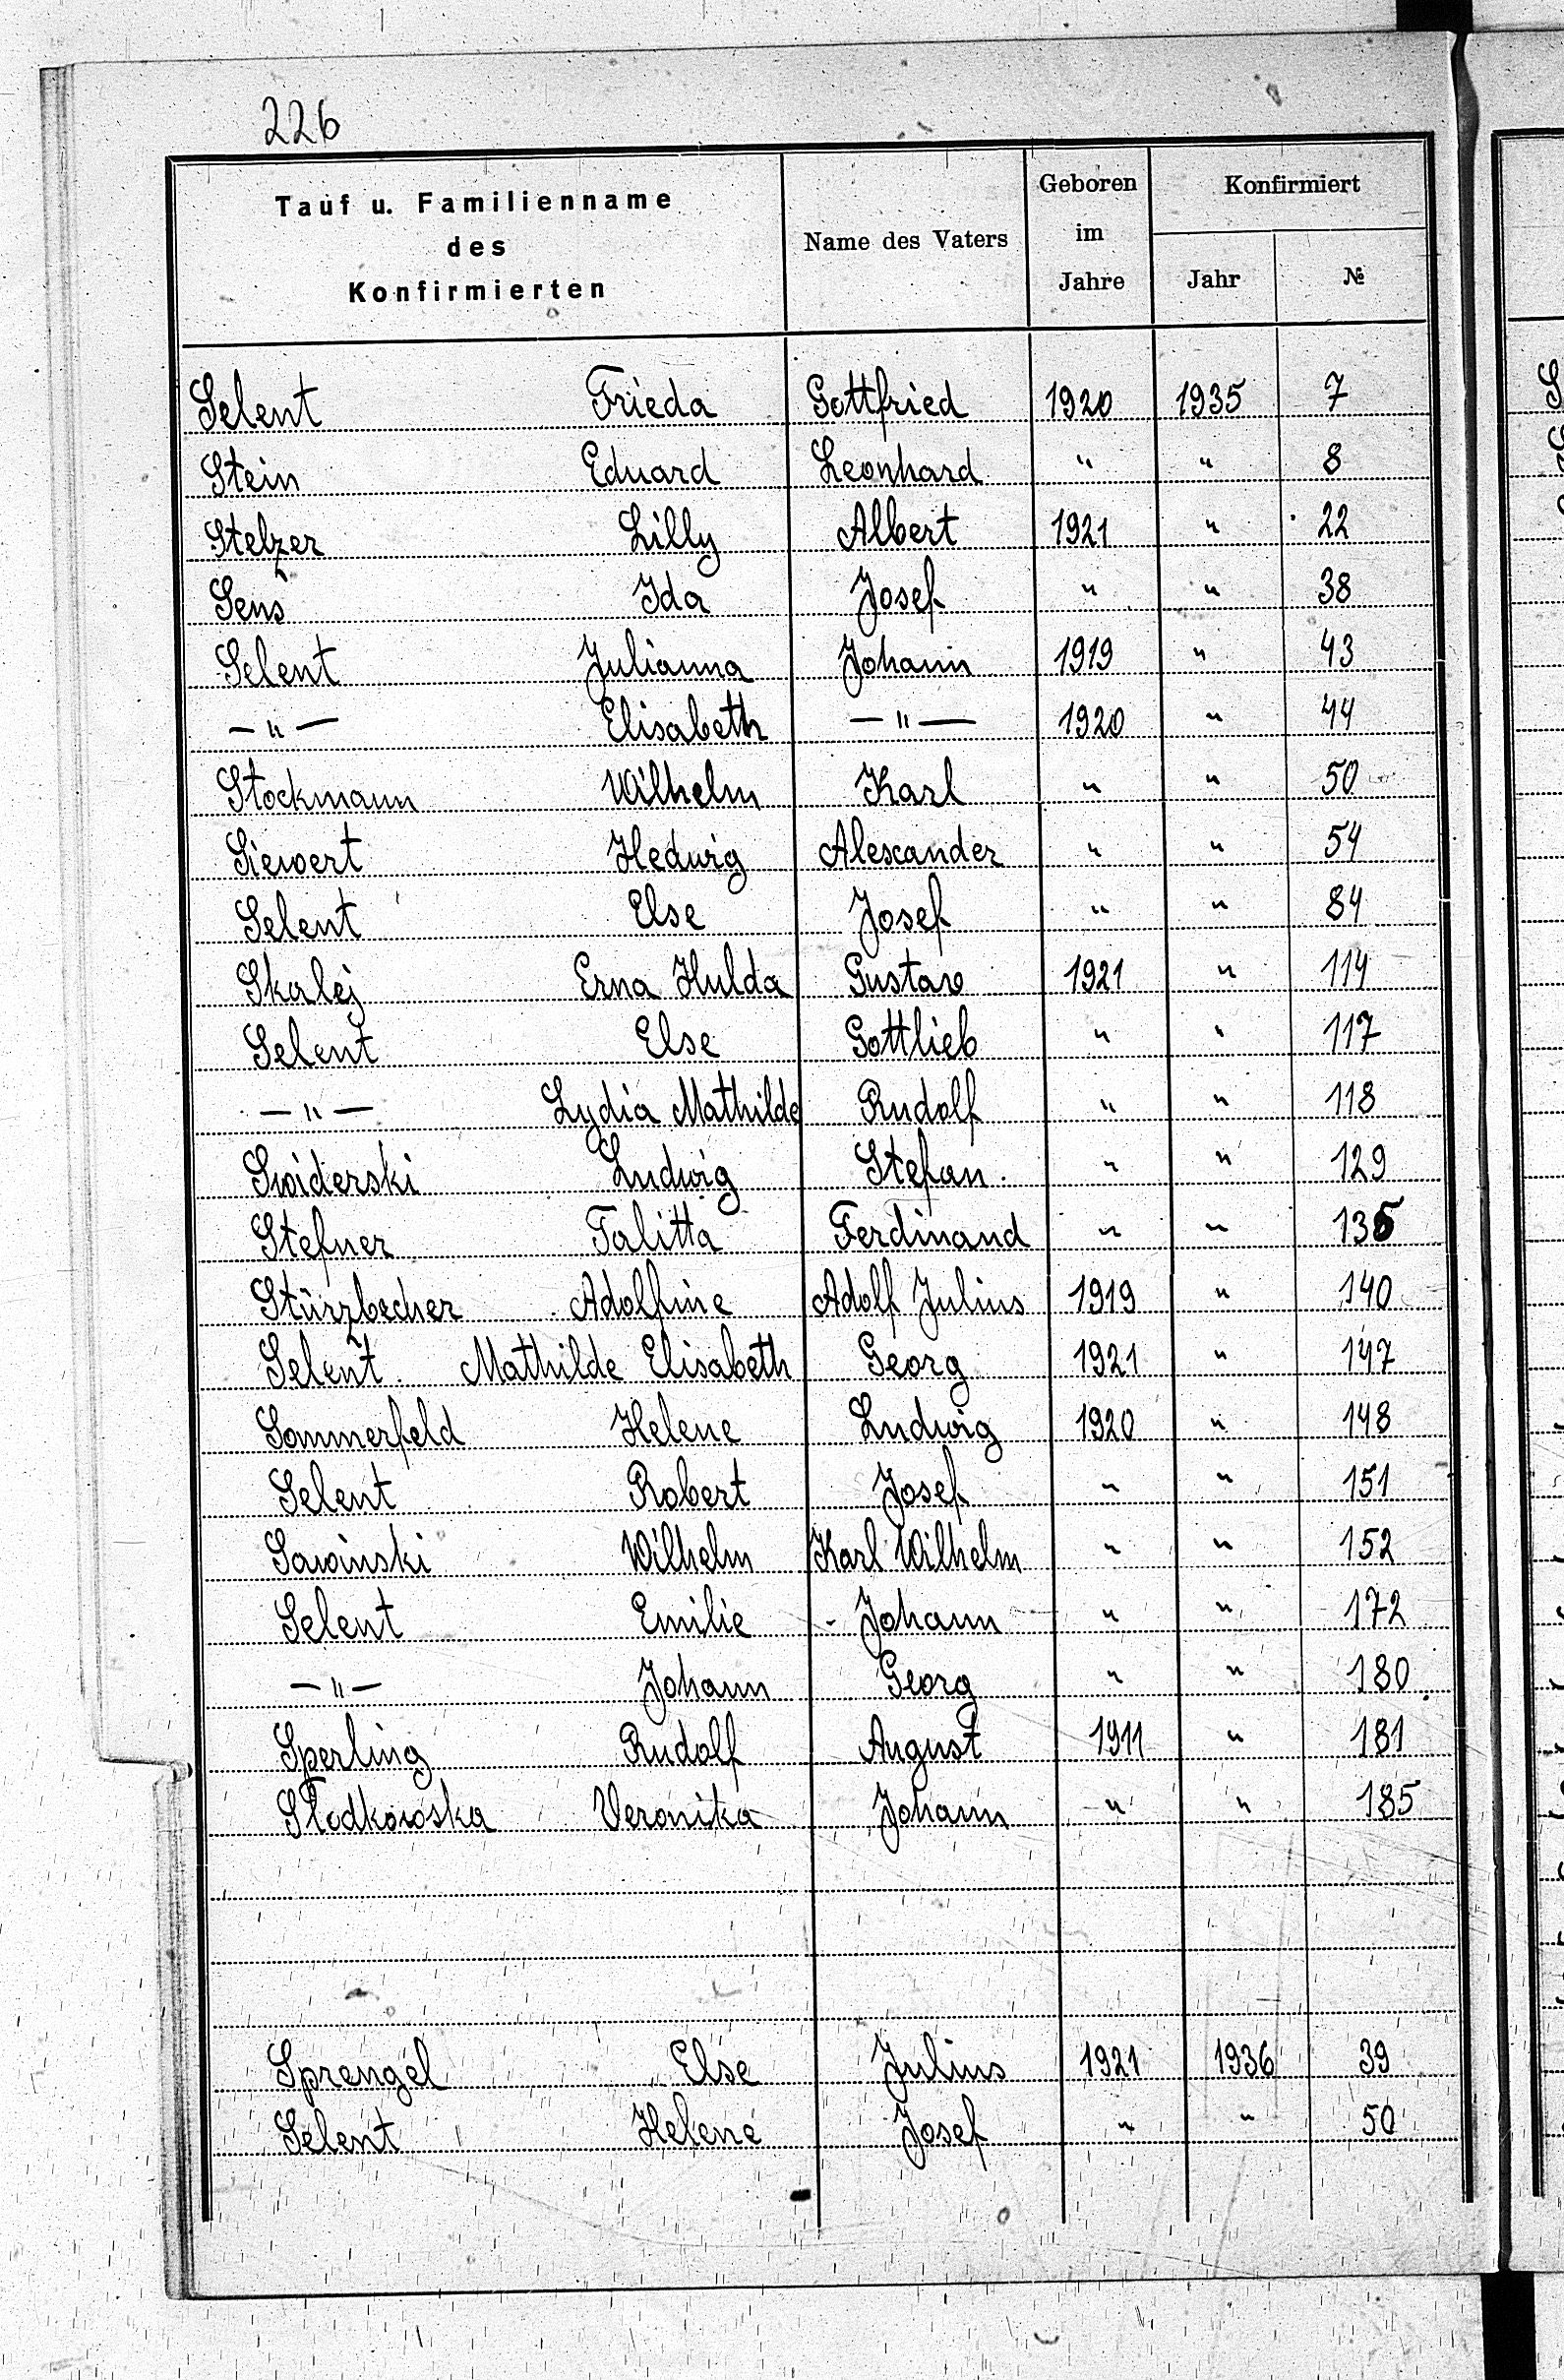 226
Tauf u. Familienname des Konfirmierten | Name des Vaters | Geboren im Jahre | Konfirmiert Jahr | №
Selent Frieda Gottfried 1920 1935 7
Stein Eduard Leonhard " " 8
Stelzer Lilly Albert 1921 " 22
Sens Ida Josef " " 38
Selent Julianna Johann 1919 " 43
—"— Elisabeth —"— 1920 " 44
Stockmann Wilhelm Karl " " 50
Siewert Hedwig Alexander " " 54
Selent Else Josef " " 84
Skalej Erna Hulda Gustav 1921 " 114
Selent Else Gottlieb " " 117
—"— Lydia Mathilde Rudolf " " 118
Swiderski Ludwig Stefan " " 129
Stefner Talitta Ferdinand " " 135
Stürzbecher Adolfine Adolf Julius 1919 " 140
Selent Mathilde Elisabeth Georg 1921 " 147
Sommerfeld Helene Ludwig 1920 " 148
Selent Robert Josef " " 151
Sawinski Wilhelm Karl Wilhelm " " 152
Selent Emilie Johann " " 172
—"— Johann Georg " " 180
Sperling Rudolf August 1911 " 181
Słodkowska Veronika Johann " " 185
Sprengel Else Julius 1921 1936 39
Selent Helene Josef " " 50